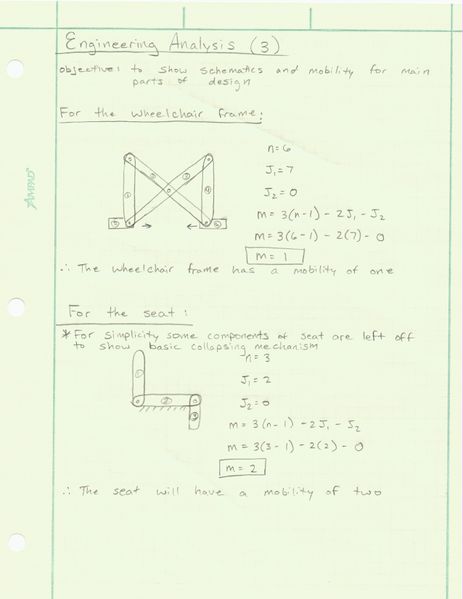 Engineering Analysis (3)
objective: to show schematics and mobility for main
parts of design
For the wheelchair frame:
n=6
J₁=7
J₂=0
m = 3(n-1) - 2J₁ - J₂
m = 3(6-1) - 2(7) - 0
m = 1
∴ The wheelchair frame has a mobility of one
For the seat:
* For simplicity some components of seat are left off
to show basic collapsing mechanism
n = 3
J₁ = 2
J₂ = 0
m = 3(n-1) - 2J₁ - J₂
m = 3(3-1) - 2(2) - 0
m = 2
∴ The seat will have a mobility of two
AMPAD